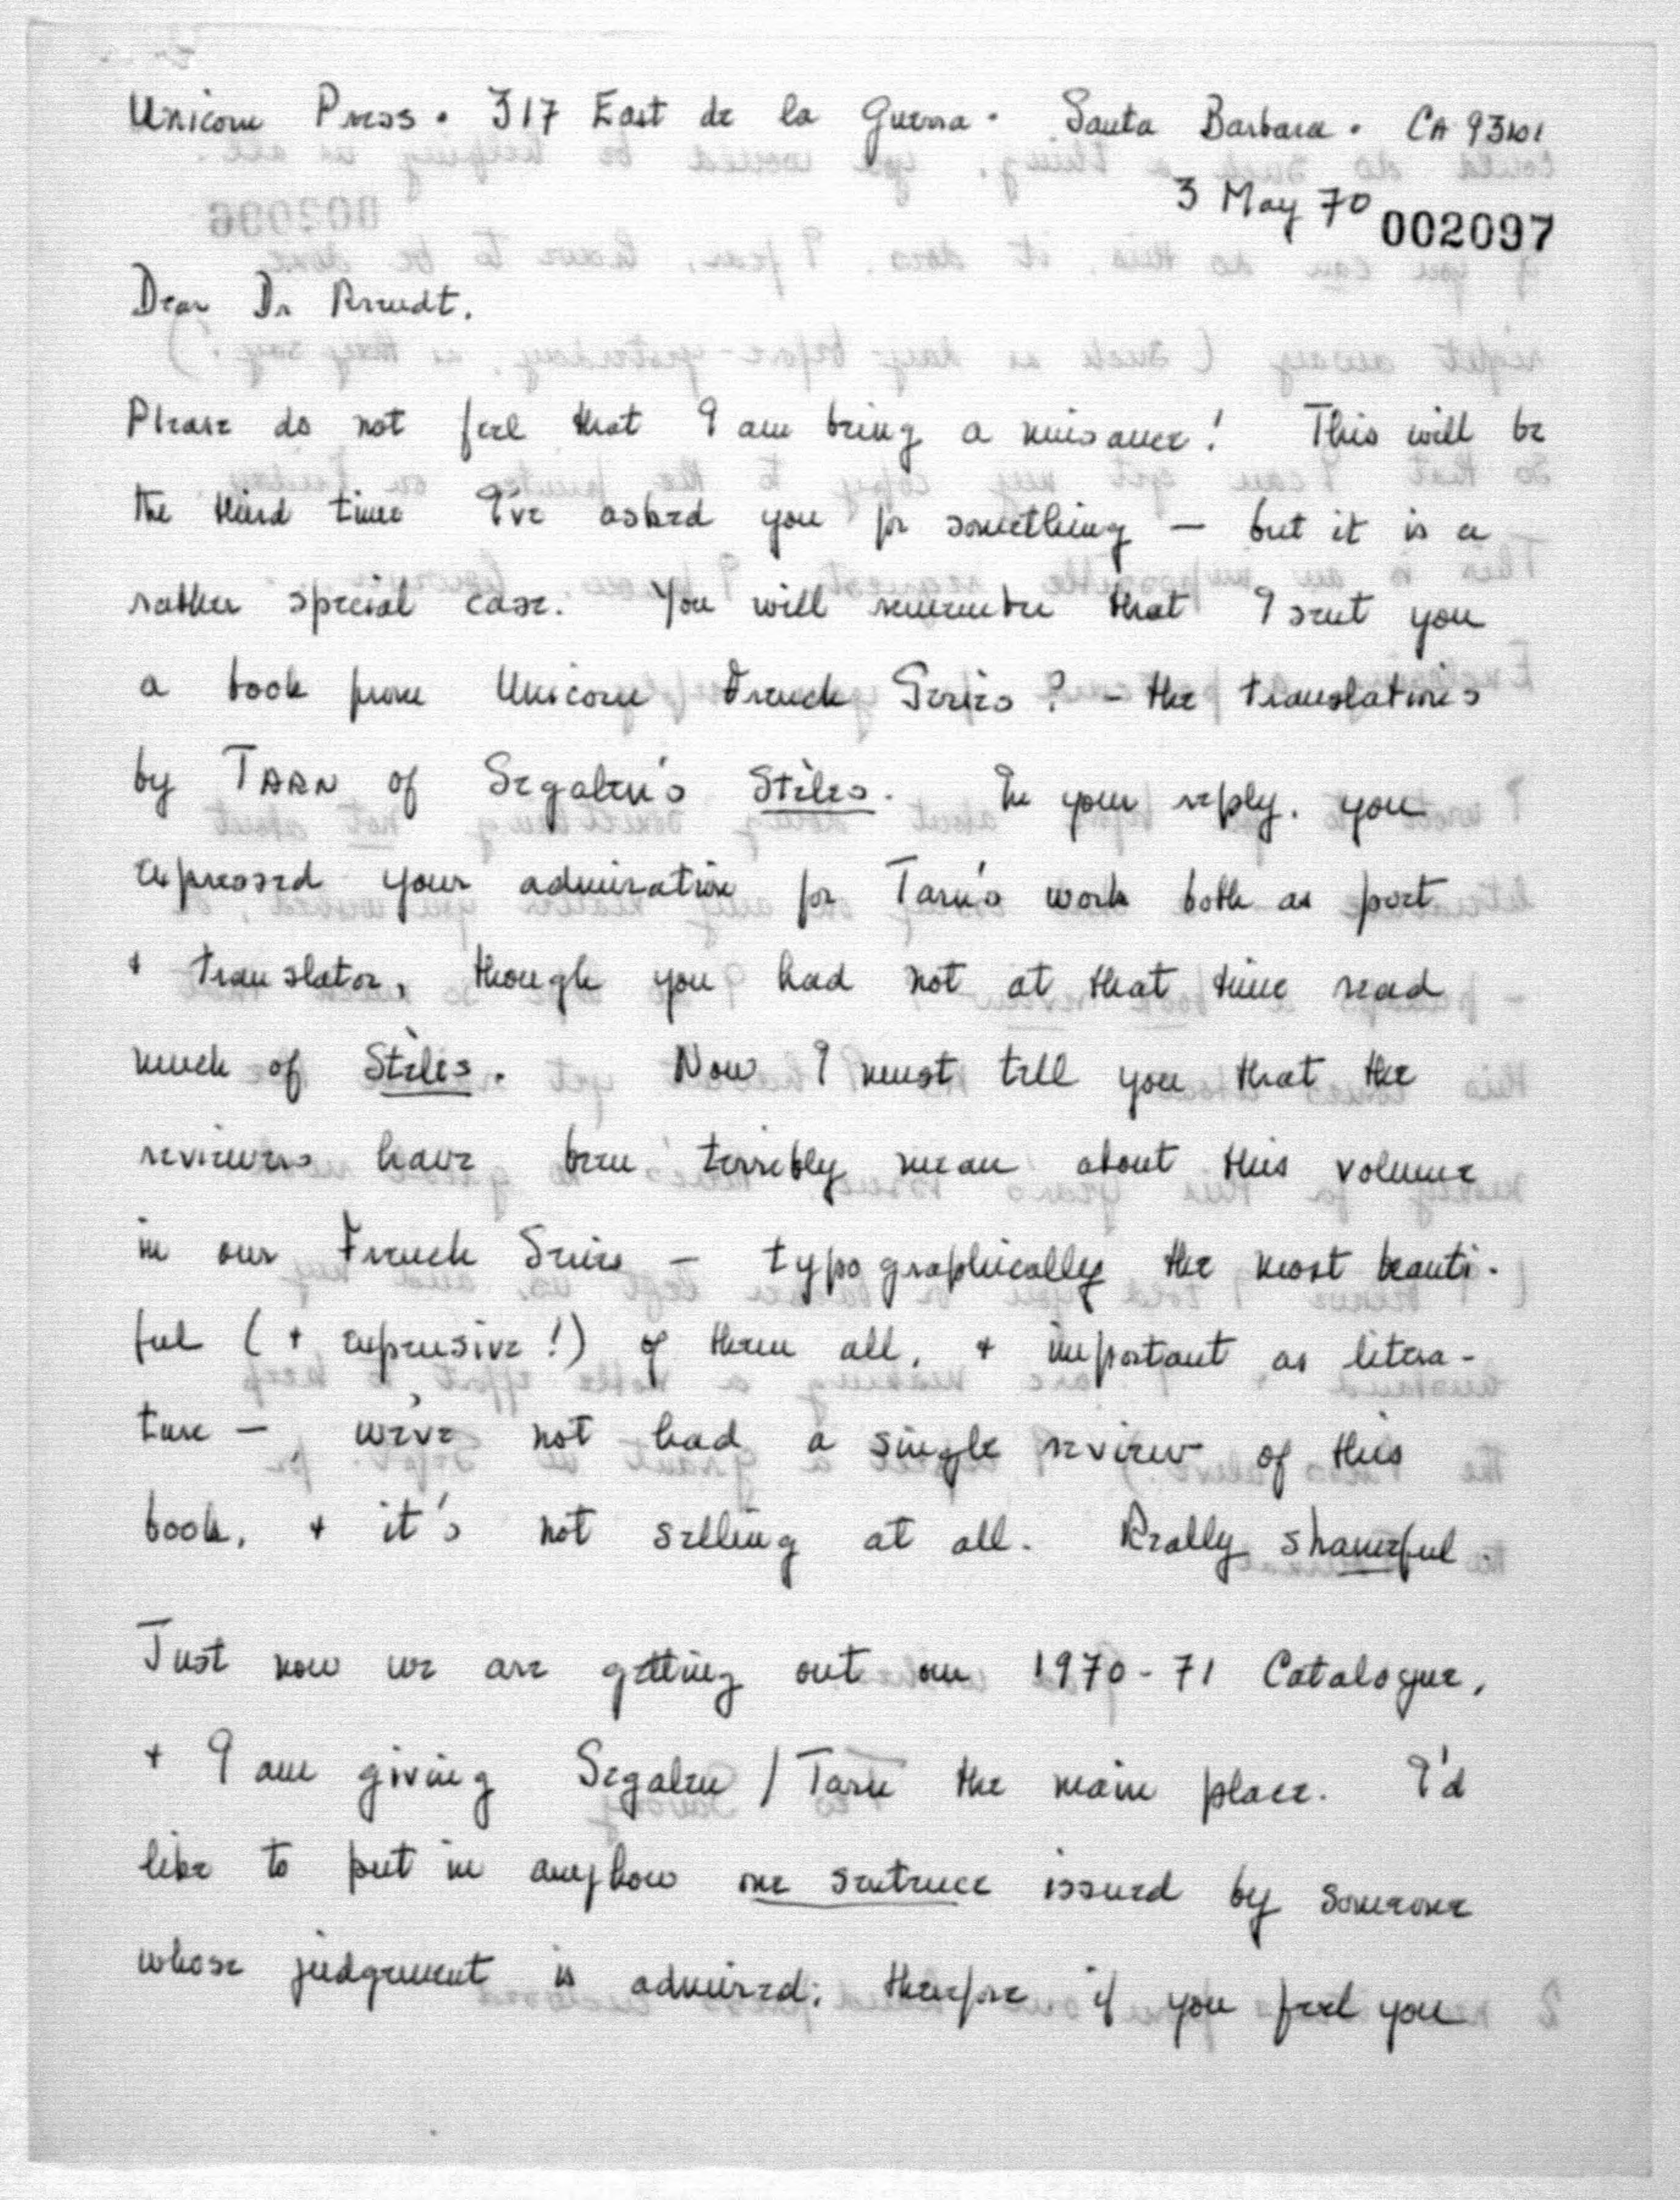 Unicorn Press. 317 East de la Guerra. Santa Barbara. CA 93101
3 May 70
002097
Dear Dr Arendt,
Please do not feel that I am being a nuisance! This will be
the third time I've asked you for something – but it is a
rather special case. You will remember that I sent you
a book from Unicorn French Series? – the translations
by TARN of Segalen's Stèles. In your reply, you
expressed your admiration for Tarn's work both as poet
+ translator, though you had not at that time read
much of Stèles. Now I must tell you that the
reviewers have been terribly mean about this volume
in our French Series – typographically the most beauti-
ful (+ expensive!) of them all, + important as litera-
ture – we've not had a single review of this
book, + it's not selling at all. Really shameful.
Just now we are getting out our 1970-71 Catalogue,
+ I am giving Segalen / Tarn the main place. I'd
like to put in anyhow one sentence issued by someone
whose judgement is admired; therefore if you feel you